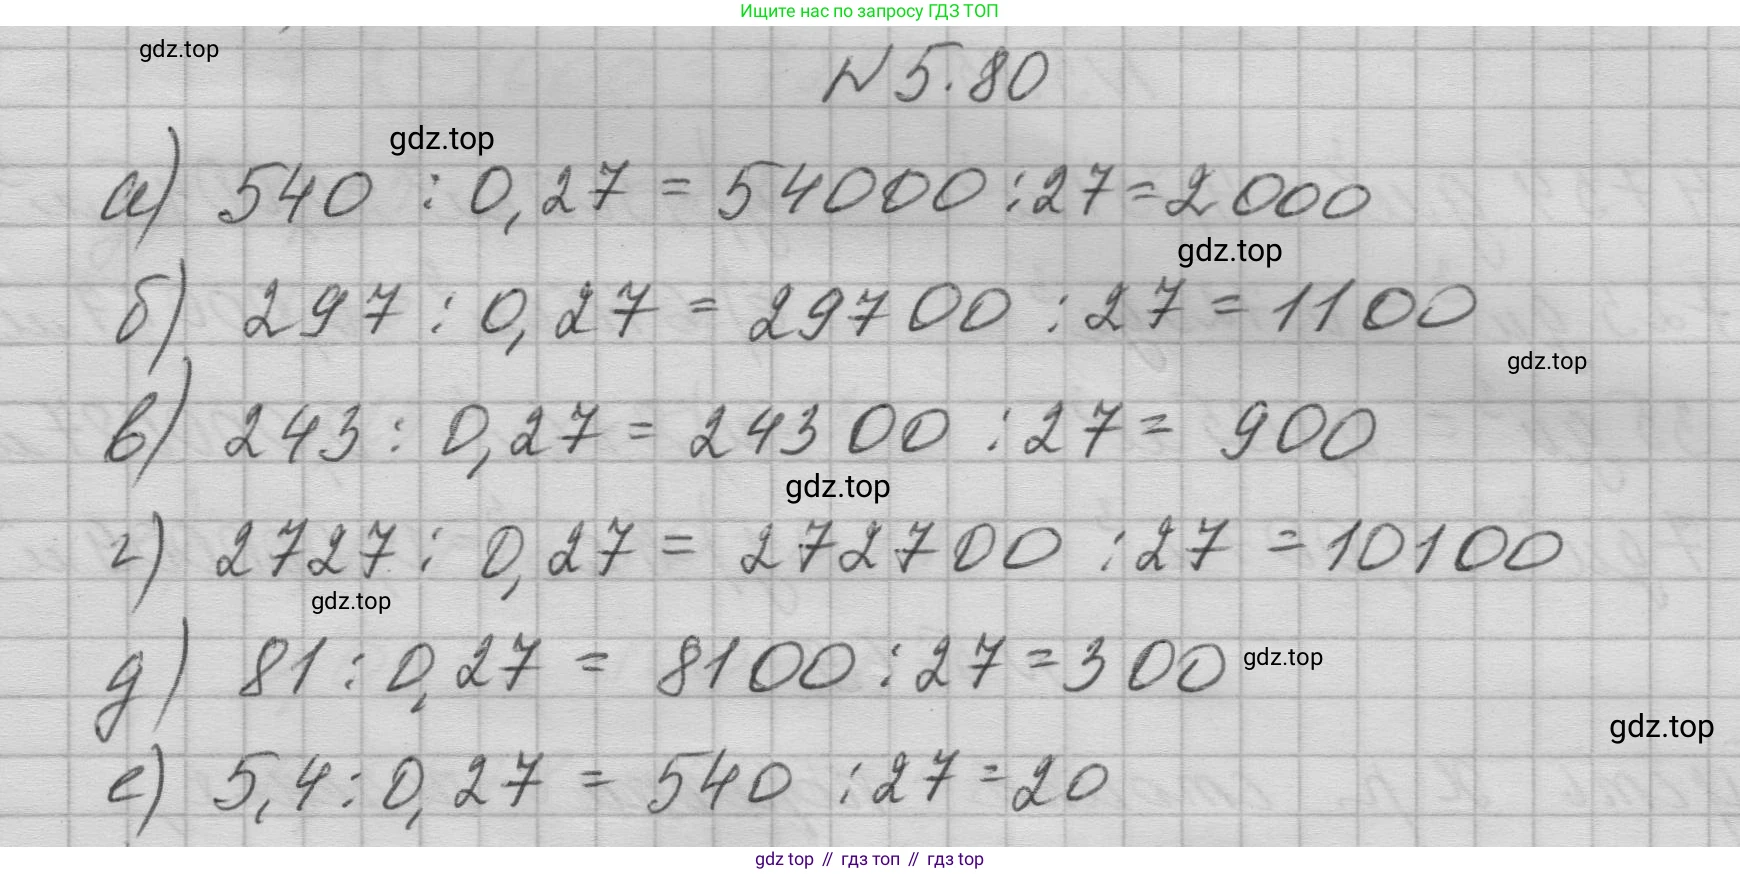 Ищите нас по запросу ГДЗ ТОП
gdz.top
N 5.80
gdz.top
а) 540 : 0,27 = 54000 : 27 = 2000
gdz.top
б) 297 : 0,27 = 29700 : 27 = 1100
gdz.top
в) 243 : 0,27 = 24300 : 27 = 900
gdz.top
г) 2727 : 0,27 = 272700 : 27 = 10100
gdz.top
д) 81 : 0,27 = 8100 : 27 = 300
gdz.top
gdz.top
е) 5,4 : 0,27 = 540 : 27 = 20
gdz top // гдз топ // гдз top